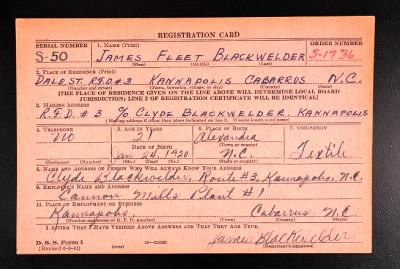 REGISTRATION CARD
SERIAL NUMBER 1. NAME (Print) ORDER NUMBER
S-50 JAMES FLEET BLACKWELDER S-1736
(First) (Middle) (Last)
2. PLACE OF RESIDENCE (Print)
DALE ST. R.F.D. #3 KANNAPOLIS CABARRUS N.C.
(Number and street) (Town, township, village, or city) (County) (State)
[THE PLACE OF RESIDENCE GIVEN ON THE LINE ABOVE WILL DETERMINE LOCAL BOARD
JURISDICTION; LINE 2 OF REGISTRATION CERTIFICATE WILL BE IDENTICAL]
3. MAILING ADDRESS
R.F.D. # 3 C/O CLYDE BLACKWELDER, KANNAPOLIS
[Mailing address if other than place indicated on line 2. If same insert word same]
4. TELEPHONE 5. AGE IN YEARS 6. PLACE OF BIRTH 7. OCCUPATION
no 21 Alexandria
DATE OF BIRTH
Jan 24, 1920 N.C. Textile
8. NAME AND ADDRESS OF PERSON WHO WILL ALWAYS KNOW YOUR ADDRESS
Clyde Blackwelder, Route #3, Kannapolis, N.C.
9. EMPLOYER'S NAME AND ADDRESS
Cannon Mills Plant #1
10. PLACE OF EMPLOYMENT OR BUSINESS
Kannapolis, Cabarrus N.C.
(Number and street or R. F. D. number) (Town) (County) (State)
I AFFIRM THAT I HAVE VERIFIED ABOVE ANSWERS AND THAT THEY ARE TRUE.
D. S. S. Form 1 James Blackwelder